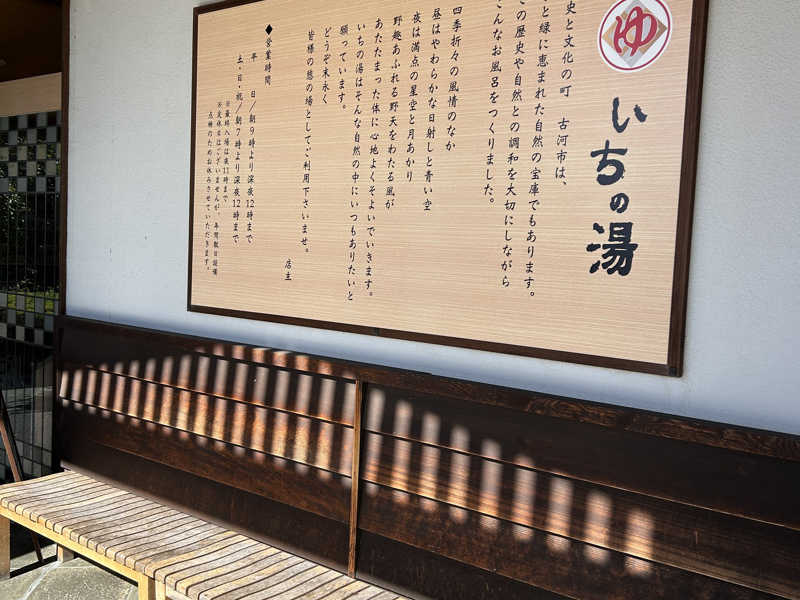 ゆ
いちの湯
史と文化の町　古河市は、
と緑に恵まれた自然の宝庫でもあります。
の歴史や自然との調和を大切にしながら
こんなお風呂をつくりました。
四季折々の風情のなか
昼はやわらかな日射しと青い空
夜は満点の星空と月あかり
野趣あふれる野天をわたる風が
あたたまった体に心地よくそよいでいきます。
いちの湯はそんな自然の中にいつもありたいと
願っています。
どうぞ末永く
皆様の憩の場としてご利用下さいませ。
店主
◆営業時間
平　日／朝9時より深夜12時まで
土・日・祝／朝7時より深夜12時まで
※最終入場は夜11時まで
※定休日はございませんが、年間数日設備
点検のためお休みさせていただきます。